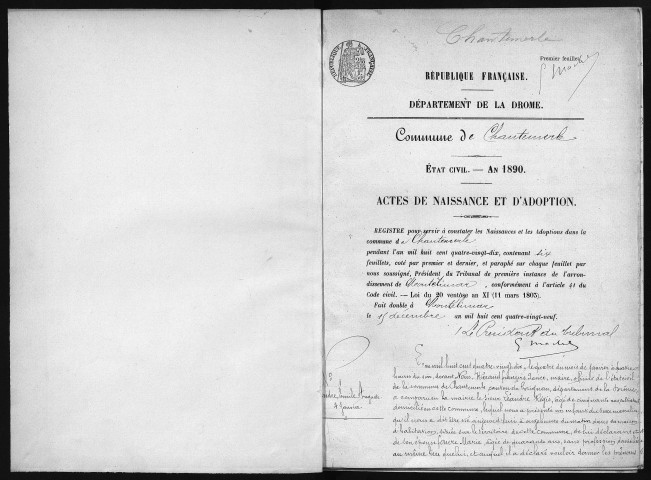 Chantemerle
Premier feuillet
G Moché
RÉPUBLIQUE FRANÇAISE
RÉPUBLIQUE FRANÇAISE.
DÉPARTEMENT DE LA DROME.
Commune de Chantemerle
ÉTAT CIVIL. — AN 1890.
ACTES DE NAISSANCE ET D'ADOPTION.
REGISTRE pour servir à constater les Naissances et les Adoptions dans la
commune de Chantemerle
pendant l'an mil huit cent quatre-vingt-dix, contenant six
feuillets, coté par premier et dernier, et paraphé sur chaque feuillet par
nous soussigné, Président du Tribunal de première instance de l'arron-
dissement de Montélimar, conformément à l'article 41 du
Code civil. — Loi du 20 ventôse an XI (11 mars 1803).
Fait double à Montélimar
le décembre an mil huit cent quatre-vingt-neuf.
Le Président du tribunal
G Moché
L'an mil huit cent quatre vingt dix, le quatre du mois de janvier, à quatre
heures du soir, devant Nous, maire, officier de l'état civil
de la commune de Chantemerle canton de Grignan, département de la Drôme,
a comparu en la mairie le sieur Régis, âgé de cinquante
domicilié en cette commune, lequel nous a présenté un enfant du sexe
qu'il nous a dit être né aujourd'hui à du matin dans sa maison
d'habitation, située sur le territoire de cette commune, de lui déclarant
de son épouse Marie, âgée de quarante ans, sans profession
au même lieu que lui, et auquel il a déclaré vouloir donner les prénoms
N°
4 Janvier